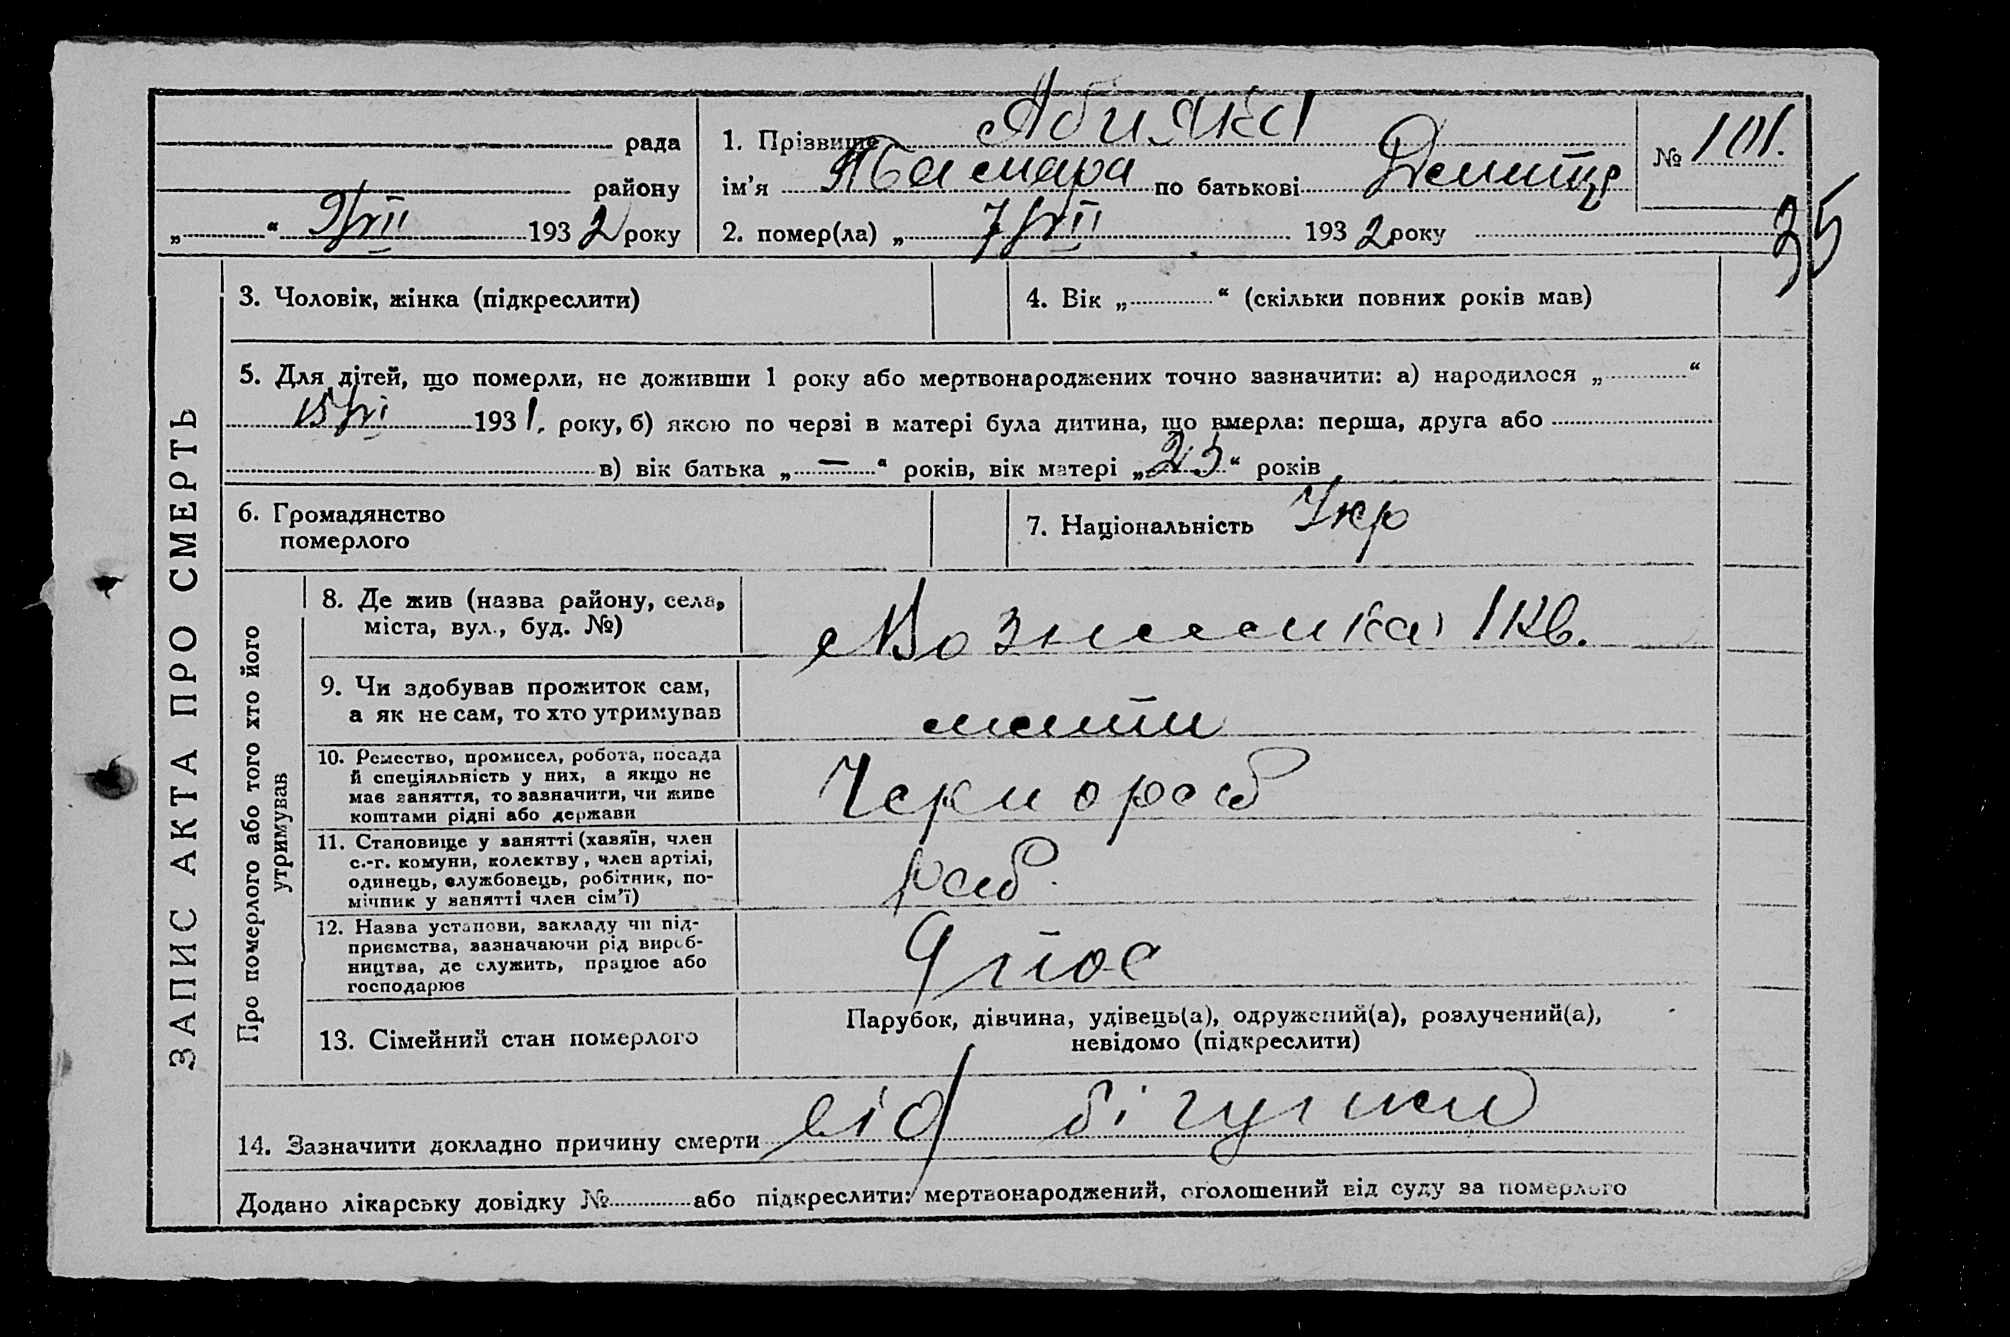 рада
району
„ “ 9/VII 1932 року
1. Прізвище
ім’я Тамара по батькові Дмитр
2. помер(ла) „ 7/VII 1932 року
№ 101.
35
ЗАПИС АКТА ПРО СМЕРТЬ
3. Чоловік, жінка (підкреслити)
4. Вік „ “ (скільки повних років мав)
5. Для дітей, що померли, не доживши 1 року або мертвонароджених точно зазначити: а) народилося „ “
1931, року, б) якою по черзі в матері була дитина, що вмерла: перша, друга або
в) вік батька „ — “ років, вік матері „ 23 “ років
6. Громадянство
померлого
7. Національність Укр
Про померлого або того хто його
утримував
8. Де жив (назва району, села,
міста, вул., буд. №)
Вознесенка 1 кв.
9. Чи здобував прожиток сам,
а як не сам, то хто утримував
мати
10. Ремество, промисел, робота, посада
й спеціяльність у них, а якщо не
має заняття, то зазначити, чи живе
коштами рідні або держави
Чернораб
11. Становище у занятті (хазяїн, член
с.-г. комуни, колектву, член артілі,
одинець, службовець, робітник, по-
мічник у занятті член сім’ї)
раб.
12. Назва установи, закладу чи під-
приємства, зазначаючи рід вироб-
ництва, де служить, працює або
господарює
13. Сімейний стан померлого
Парубок, дівчина, удівець(а), одружений(а), розлучений(а),
невідомо (підкреслити)
14. Зазначити докладно причину смерти від бігунки
Додано лікарську довідку № або підкреслити: мертвонароджений, оголошений від суду за померлого